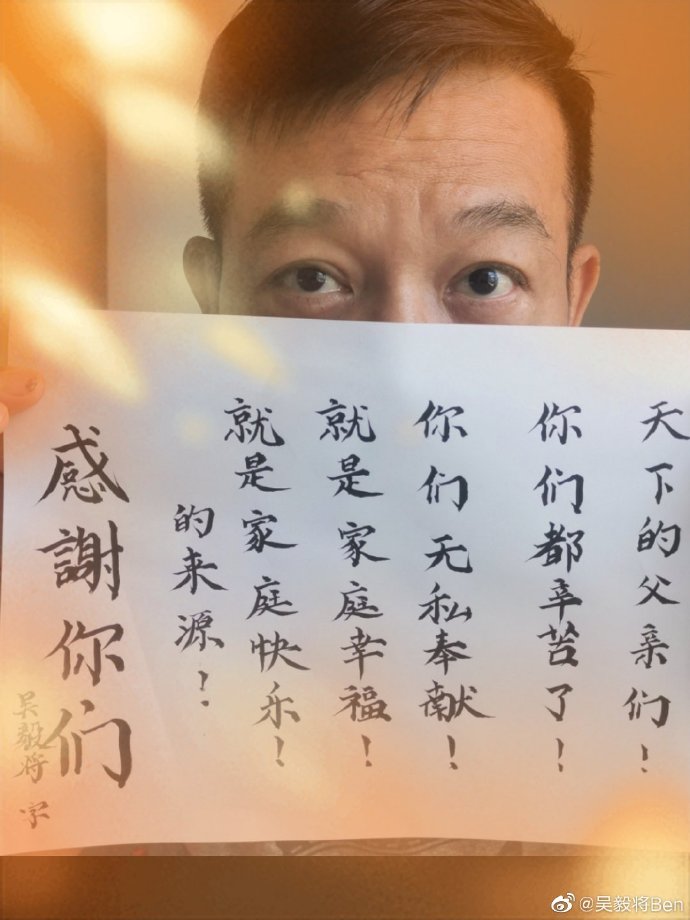 天下的父亲们！
你们都辛苦了！
你们无私奉献！
就是家庭幸福！
就是家庭快乐！
的来源！
感謝你们
吴毅将 字
@吴毅将Ben